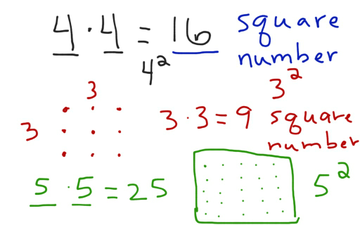 4 · 4 = 16 square number
4²
3
3
3²
3 · 3 = 9 square number
5 · 5 = 25
5²